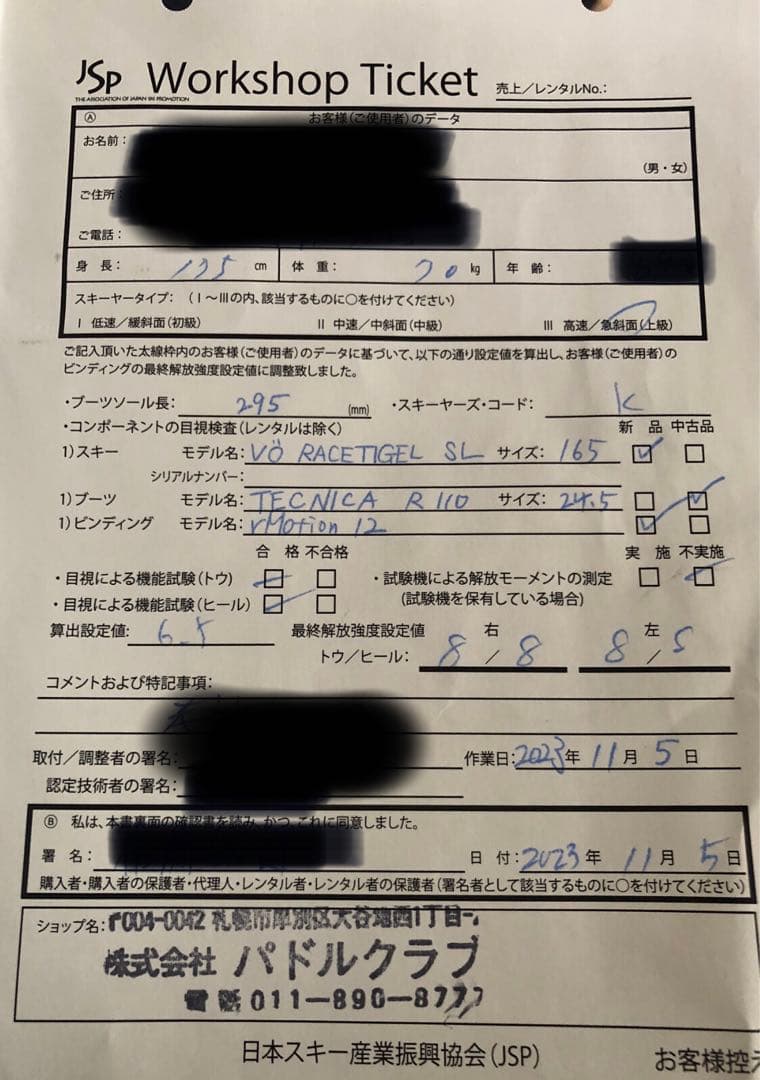 JSP Workshop Ticket 売上/レンタルNo.:
THE ASSOCIATION OF JAPAN SKI PROMOTION
Ⓐ お客様(ご使用者)のデータ
お名前:
(男・女)
ご住所:
ご電話:
身 長: 175 cm 体 重: 70 kg 年 齢:
スキーヤータイプ: (Ⅰ~Ⅲの内、該当するものに○を付けてください)
Ⅰ 低速/緩斜面(初級) Ⅱ 中速/中斜面(中級) Ⅲ 高速/急斜面(上級)
ご記入頂いた太線枠内のお客様(ご使用者)のデータに基づいて、以下の通り設定値を算出し、お客様(ご使用者)の
ビンディングの最終解放強度設定値に調整致しました。
・ブーツソール長: 295 (mm) ・スキーヤーズ・コード: K
・コンポーネントの目視検査(レンタルは除く) 新 品 中古品
1)スキー モデル名: VÖ RACETIGEL SL サイズ: 165
シリアルナンバー:
1)ブーツ モデル名: TECNICA R 110 サイズ: 24.5
1)ビンディング モデル名: rMotion 12
合 格 不合格 実 施 不実施
・目視による機能試験(トウ) ・試験機による解放モーメントの測定
・目視による機能試験(ヒール) (試験機を保有している場合)
算出設定値: 6.5 最終解放強度設定値 右 左
トウ/ヒール: 8 / 8 8 /
コメントおよび特記事項:
取付/調整者の署名: 作業日: 2023年 11月 5日
認定技術者の署名:
Ⓑ 私は、本書裏面の確認書を読み、かつ、これに同意しました。
署 名: 日 付: 2023年 11月 5日
購入者・購入者の保護者・代理人・レンタル者・レンタル者の保護者(署名者として該当するものに○を付けてください)
ショップ名: 〒004-0042 札幌市厚別区大谷地西1丁目
株式会社 パドルクラブ
電話 011-890-8777
日本スキー産業振興協会(JSP) お客様控え